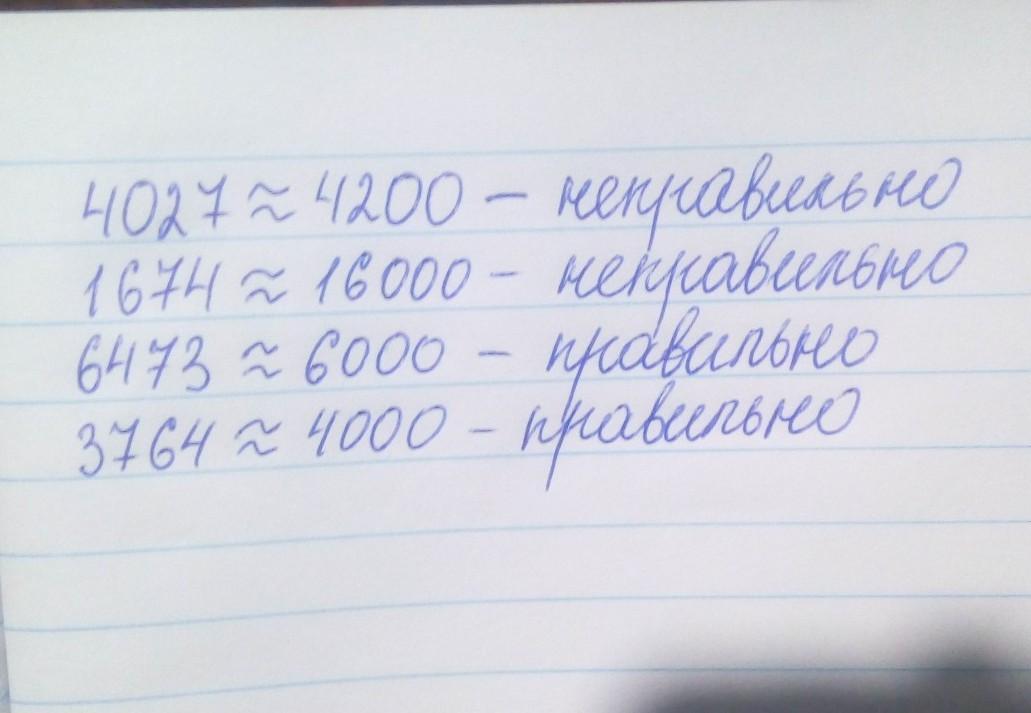 4027 ≈ 4200 – неправильно
1674 ≈ 16000 – неправильно
6473 ≈ 6000 – правильно
3764 ≈ 4000 – правильно